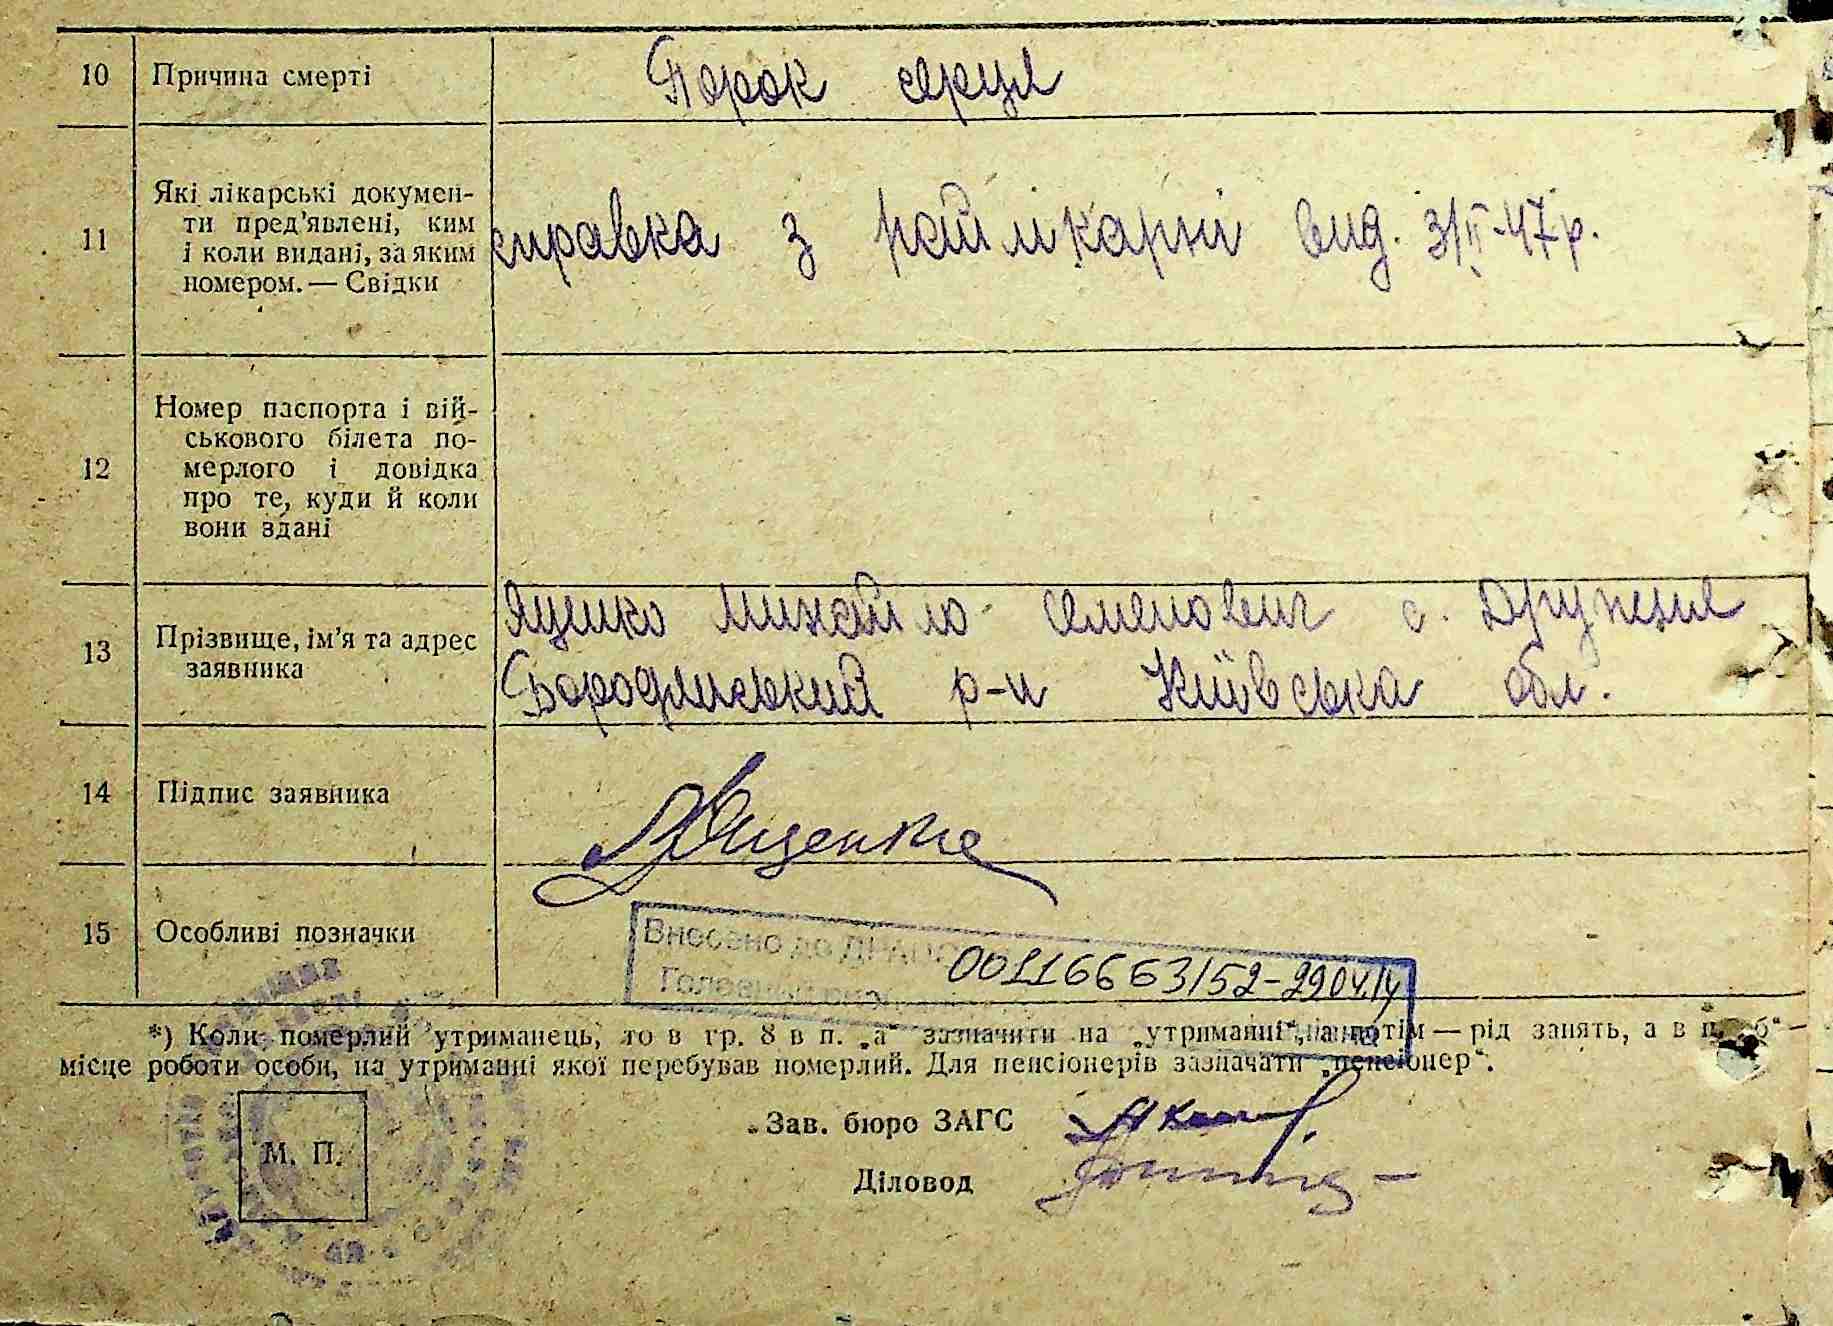 10 Причина смерті Порок серця
11 Які лікарські докумен-
ти пред'явлені, ким
і коли видані, за яким
номером. — Свідки
справка з райлікарні вид. 3/II-47 р.
12 Номер паспорта і вій-
ськового білета по-
мерлого і довідка
про те, куди й коли
вони здані
13 Прізвище, ім'я та адрес
заявника
Яценко Михайло Семенович с. Дружня
Бородянський р-н Київська обл.
14 Підпис заявника Яценко
15 Особливі позначки
Внесено до
00116663/52-
*) Коли померлий утриманець, то в гр. 8 в п. „а“ зазначити на „утриманні“, а потім — рід занять, а в п. „б“ —
місце роботи особи, на утриманні якої перебував померлий. Для пенсіонерів зазначати „пенсіонер“.
Зав. бюро ЗАГС
М. П.
Діловод